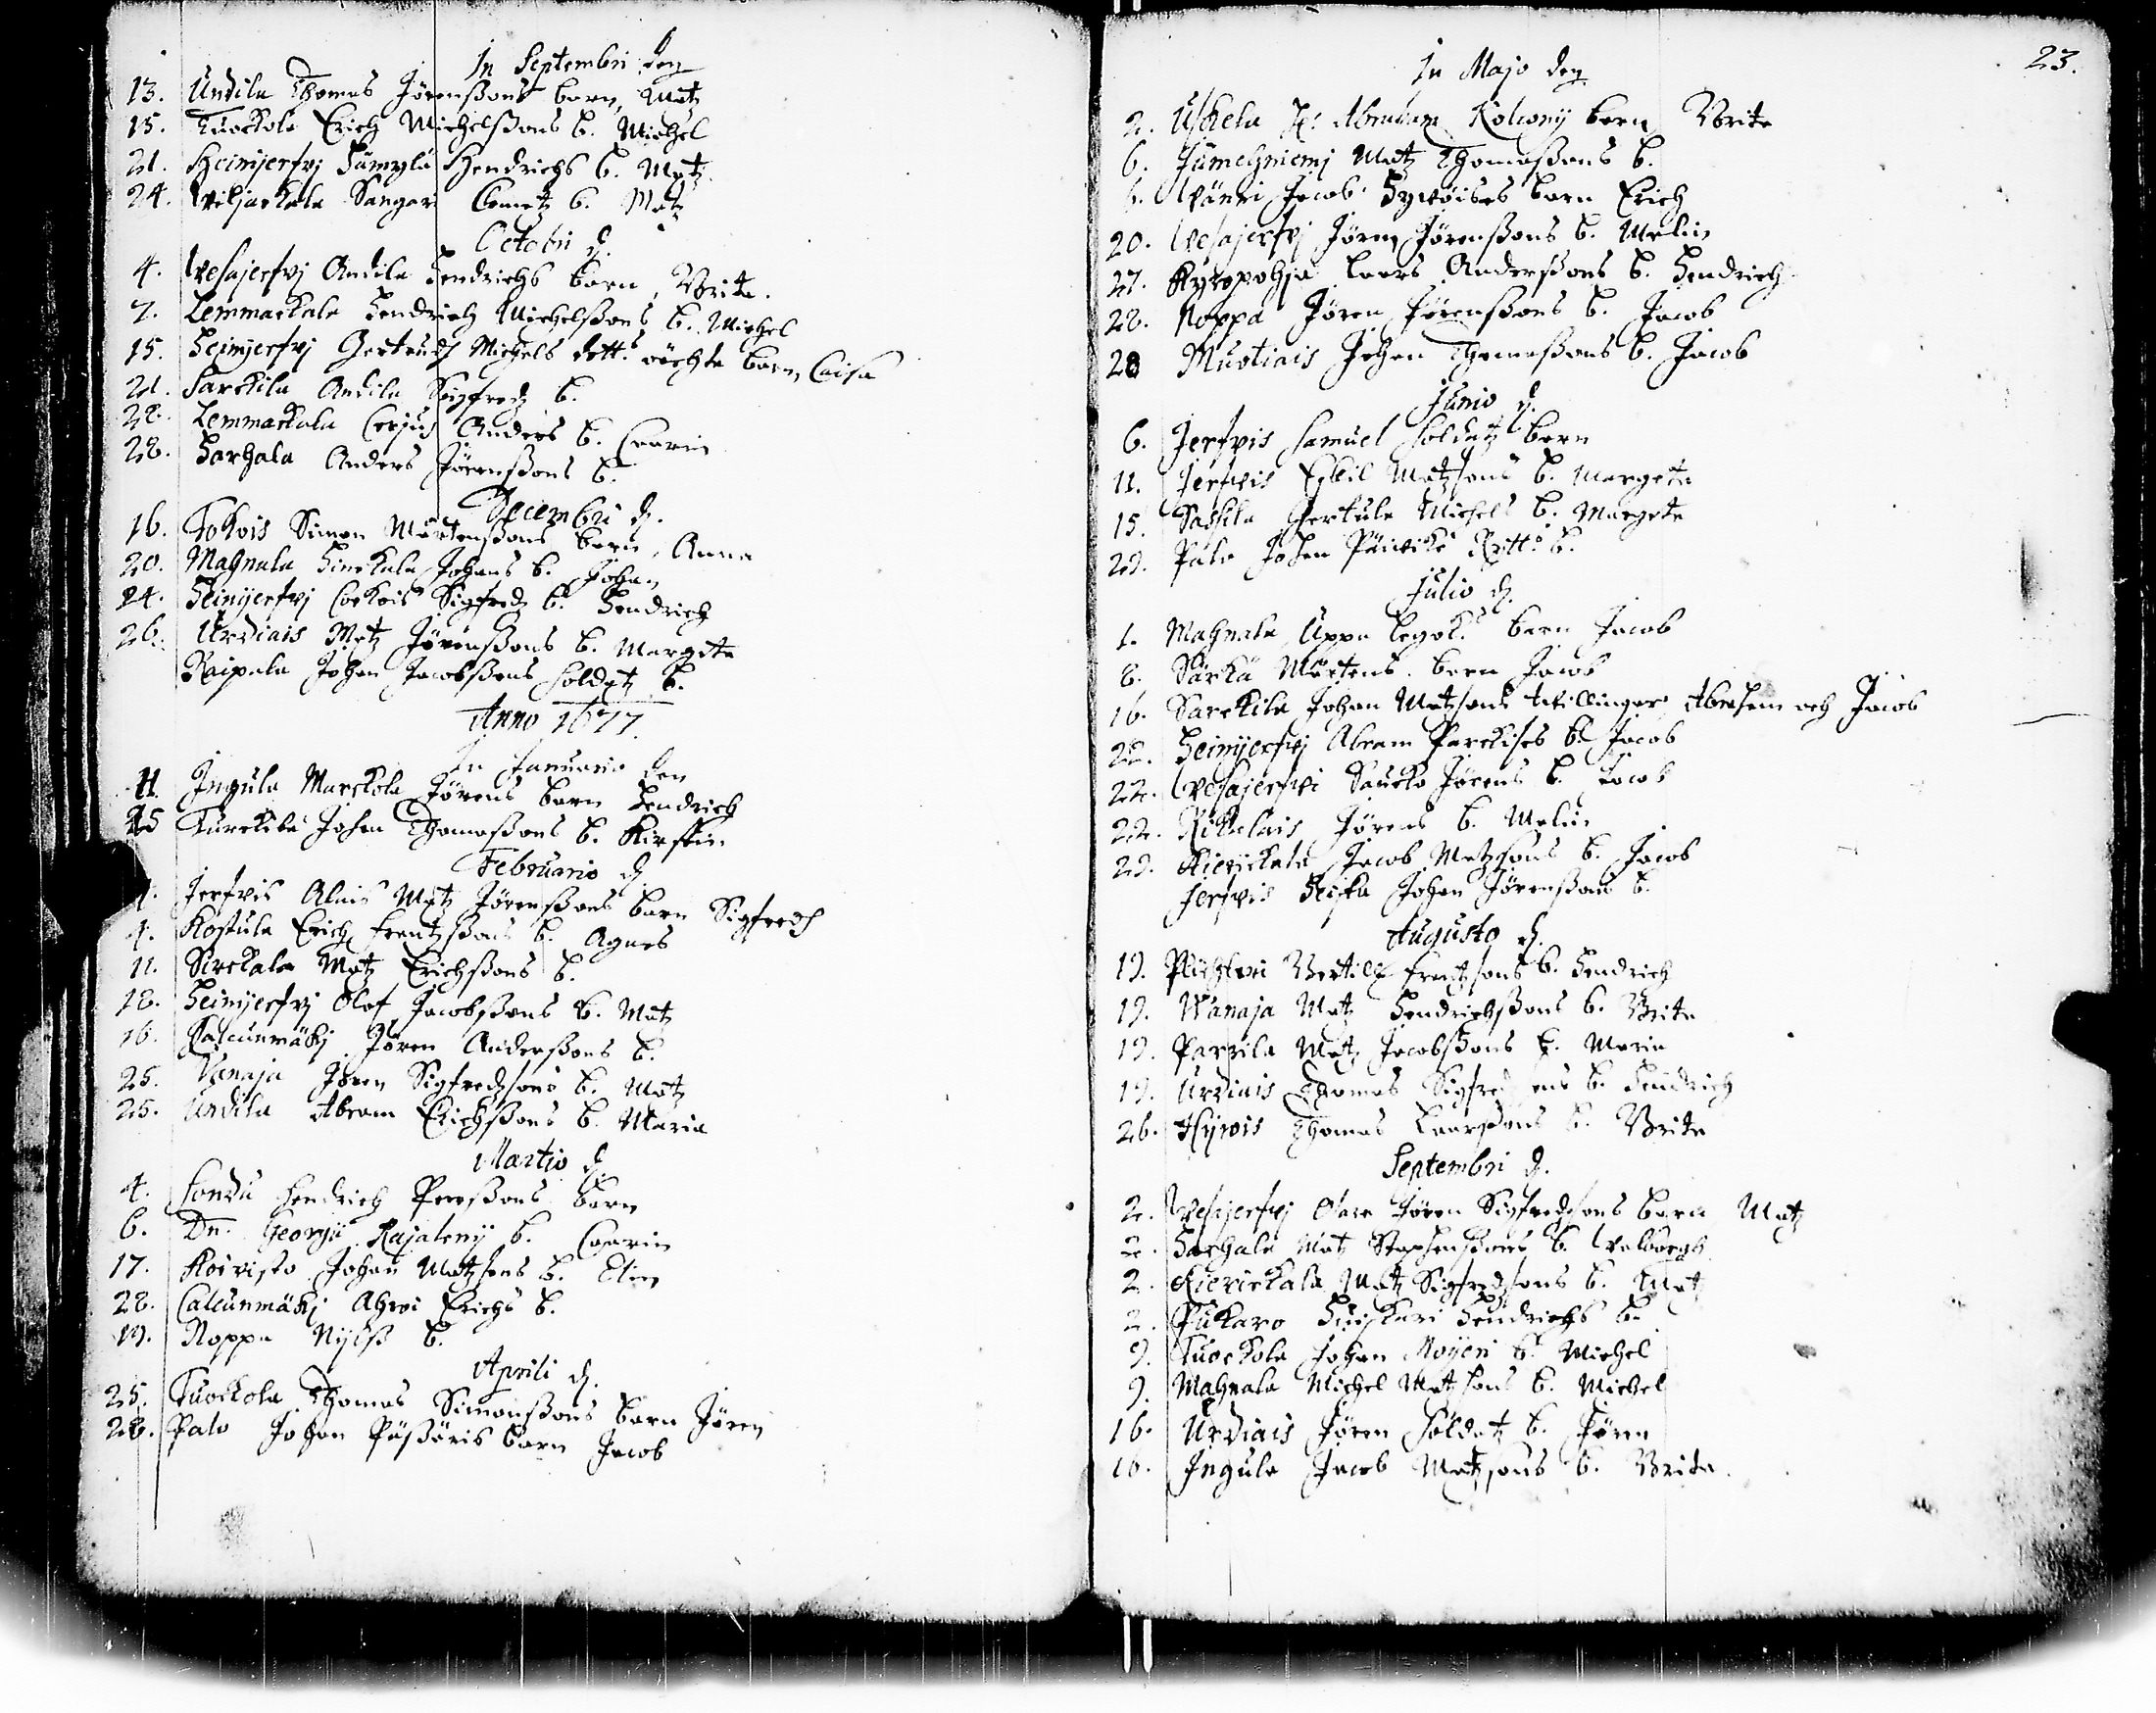 In Septembri den
13. Undila Thomas Jörenßons barn, Matz
15. Tuorkola Erich Michelßons b. Michel
21. Heimjerfvj Sämylä Hendrichs b. Matz
24. Wiljackala Sangari Clemetz b. Matz
Octobri d.
4. Wesajerfvj Andila Hendrichs barn, Brita.
7. Lemmackala Hendrich Michelßons b. Michel
15. Heimjerfvj Gertrudh Michels dott. oächta barn, Caisa
21. Sarckila Andila Sigfredz b.
28. Lemmackala Cerjus Anders b. Caarin
28. Harhala Anders Jörenßons b.
Decembri d.
16. Tokois Simon Mårtenßons barn, Anna
20. Mahnala Hinckala Johans b. Johan
24. Heimjerfvj Cockois Sigfredz b. Hendrich
26. Urdiais Matz Jörenßons b. Margeta
Raipala Johan Jacobßons soldatz b.
Anno 1677.
In Januario den
Ingula Marckola Jörens barn Hendrich
25 Kurckela Johan Thomaßons b. Kirstin
Februario d.
Jerfvis Alais Matz Jörenßons barn Sigfredh
4. Kostula Erich Frantzßons b. Agnes
11. Sirckala Matz Erichßons b.
18. Heimjerfvj Olof Jacobßons b. Matz
Calcunmäkj Jören Anderßons b.
25. Vanaja Jören Sigfredzsons b. Matz
25. Undila Abram Erichßons b. Maria
Martio d.
4. Sondu Hendrich Peerßons barn
6. Dn. Georgii Kajaleny b. Caarin
17. Koivisto Johan Matzsons b. Elin
28. Calcunmäkj Ahvoi Erichs b.
Noppa Nijlß b.
Aprili d.
25. Tuorkola Thomas Simonßons barn Jören
28. Palo Johan Päßäris barn Jacob
23.
In Majo den
2. Uskela H: Abraham Kolcony barn Brita
6. Jumeßniemj Matz Thomaßons b.
6. Wänni Jacob Hyvöises barn Erich
20. Wesajerfvj Jören Jörenßons b. Malin
27. Kyröpohja Laars Anderßons b. Hendrich
28. Noppa Jören Jörenßons b. Jacob
28 Muotiais Johan Thomaßons b. Jacob
Junio d.
6. Jerfvis Samuel soldatz barn
11. Jerfvis Eskil Matzsons b. Margeta
15. Sassila Pertula Michels b. Margeta
Palo Johan Päivikä Ritt. b.
Julio d.
1. Mahnala Uppa Legok. barn Jacob
8. Särkä Mårtens barn Jacob
16. Sarckila Johan Matzsons twillingar Abraham och Jacob
22. Heimjerfvj Abram Parckises b. Jacob
22. Wesajerfvi Saucko Jörens b. Jacob
22. Rikalais Jörens b. Malin
Kierickala Jacob Matzsons b. Jacob
Jerfvis Heiska Johan Jörenßons b.
Augusto d.
19. Bertill Frantzsons b. Hendrich
19. Wanaja Matz Hendrichßons b. Brita
19. Parrila Matz Jacobßons b. Maria
19. Urdiais Thomas Sigfredzsons b. Hendrich
26. Hyrois Thomas Laarßons b. Brita
Septembri d.
2. Wesajerfvj Ojare Jören Sigfredzsons barn Matz
2. Harhala Matz Staphenßons b. Walborgh
2. Kierickala Matz Sigfredzsons b. Matz
2. Pukaro Huiskari Hendrichs b.
9. Tuorkola Johan Moijsen b. Michel
9. Mahnala Michel Matzsons b. Michel
16. Urdiais Jören soldatz b. Jören
16. Ingula Jacob Matzsons b. Brita.